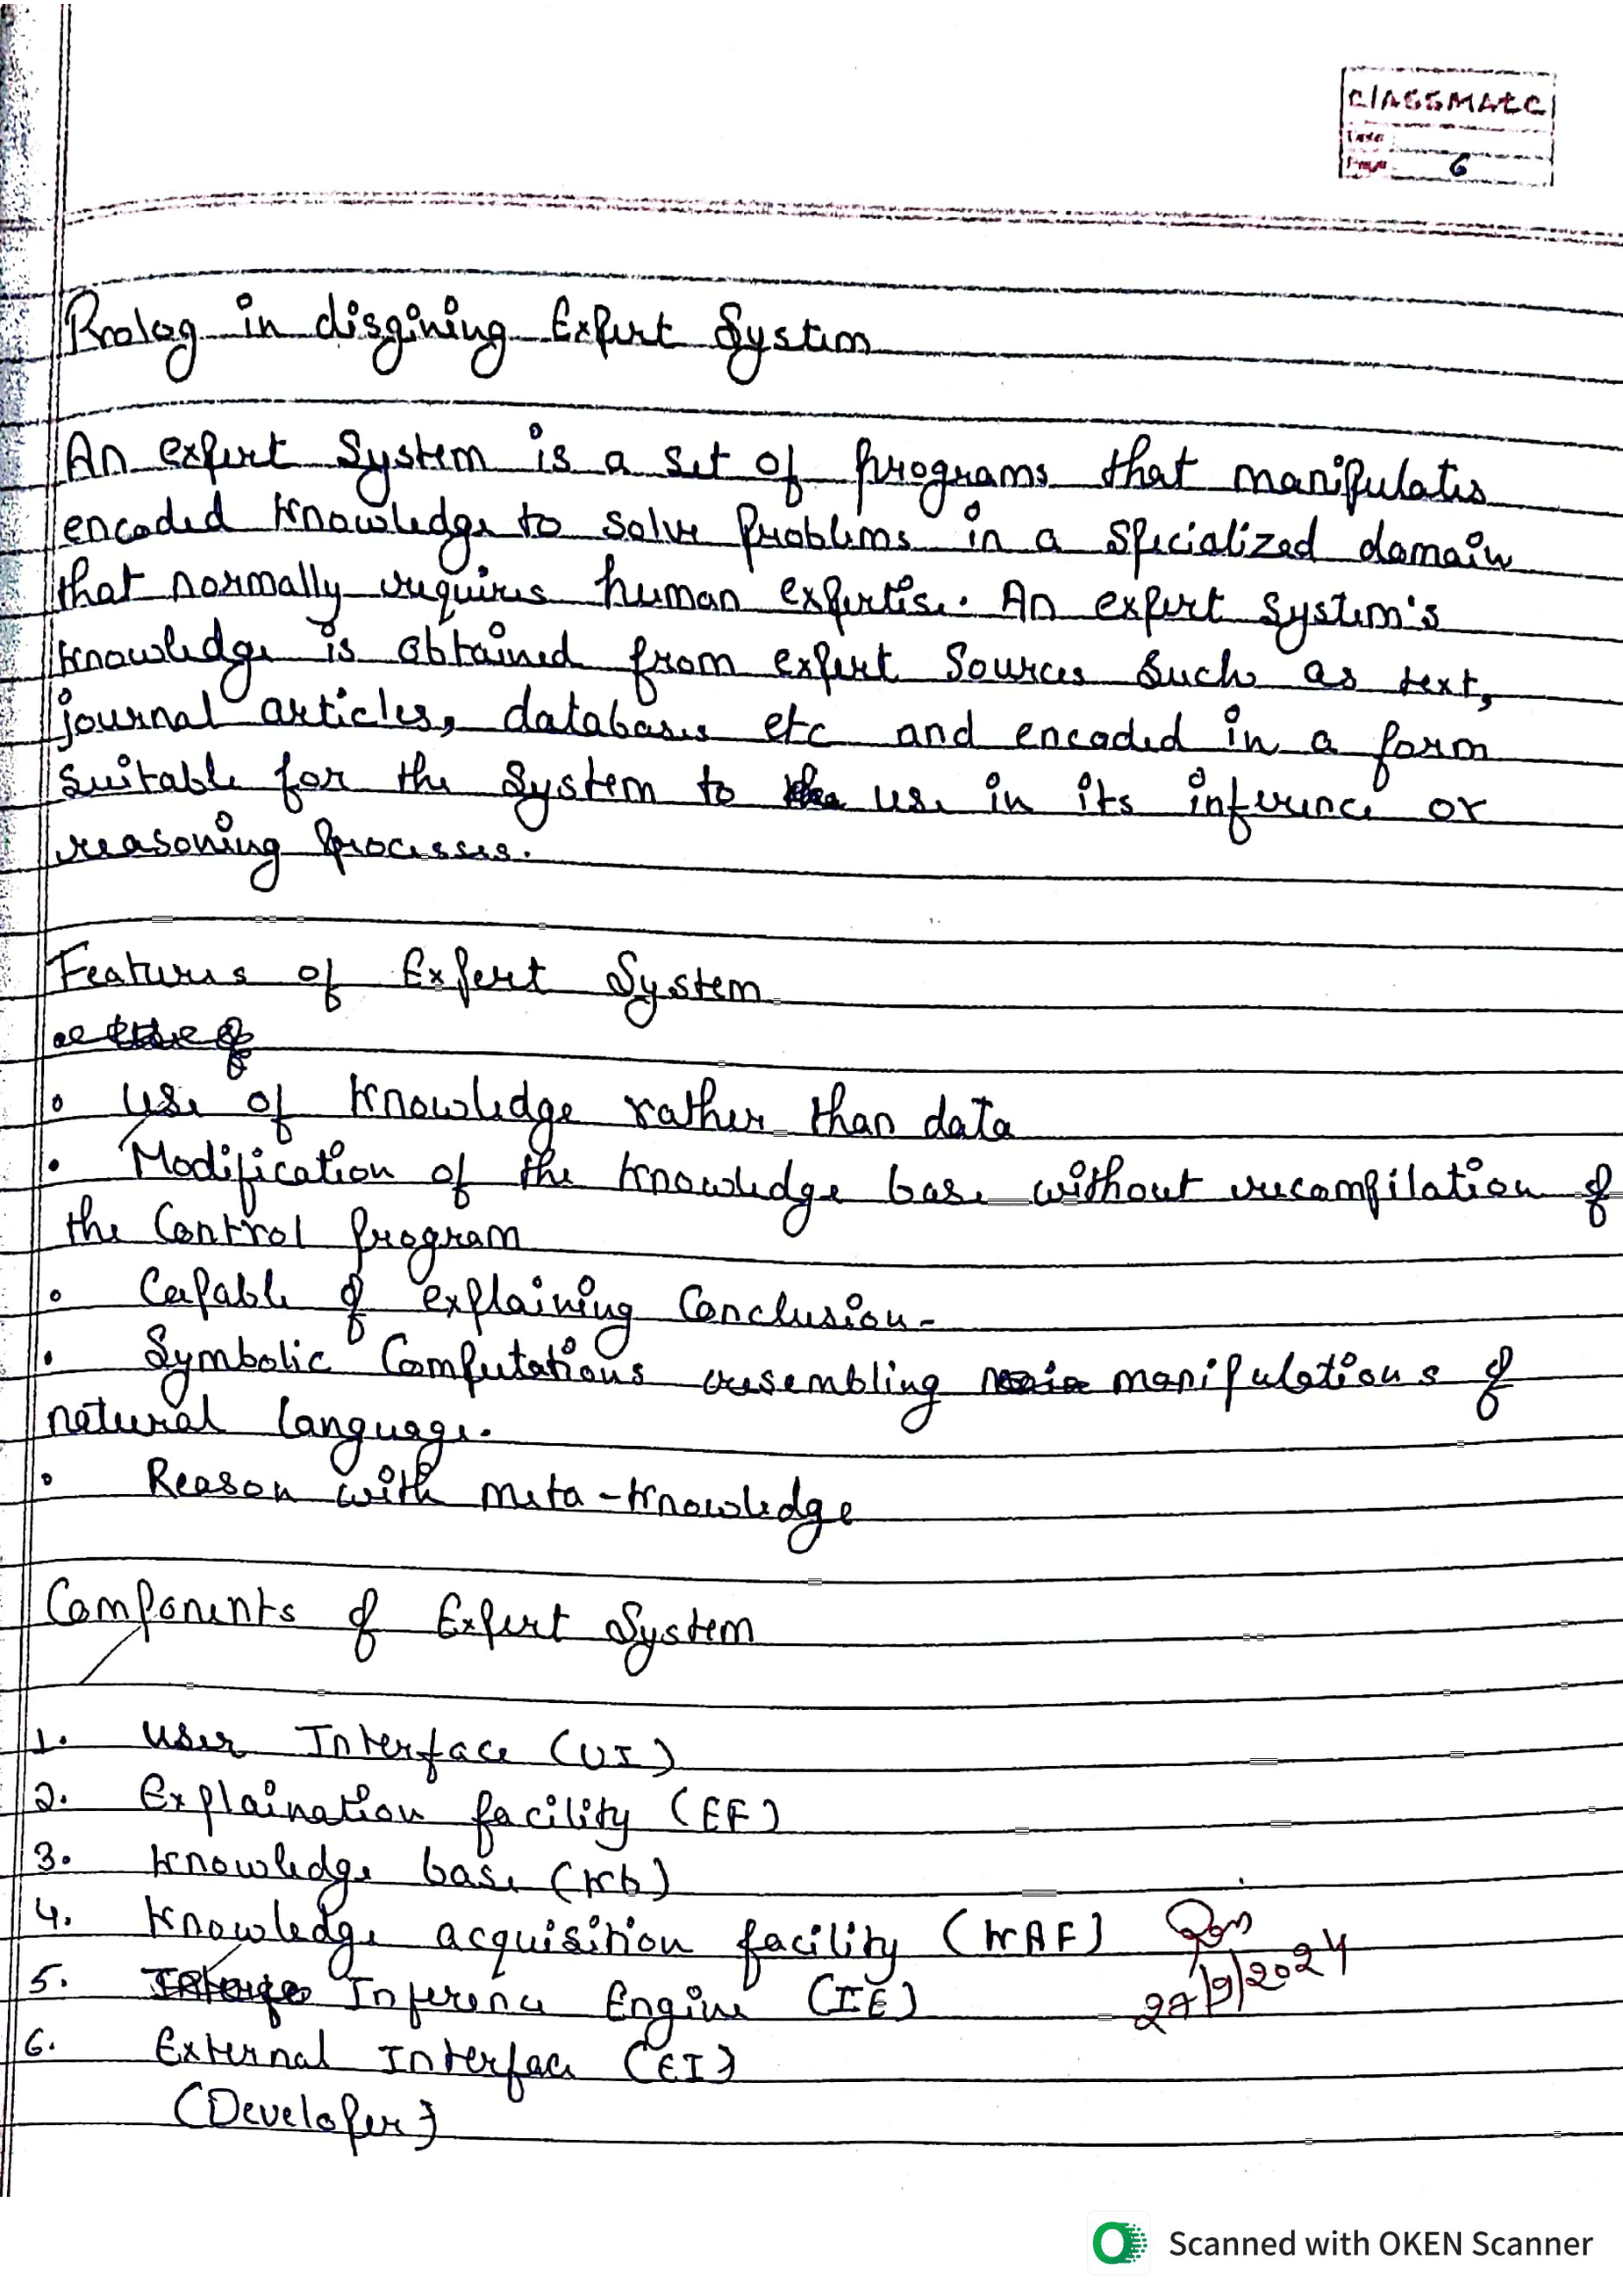 classmate
Date
Page 6
Prolog in disgining Expert System
An expert System is a set of programs that manipulates
encoded knowledge to solve problems in a specialized domain
that normally requires human expertise. An expert system's
knowledge is obtained from expert sources such as text,
journal articles, databases etc and encoded in a form
suitable for the system to use in its inference or
reasoning processes.
Features of Expert System
• Use of knowledge rather than data
• Modification of the knowledge base without recompilation of
the Control program
• Capable of explaining Conclusion.
• Symbolic Computations resembling manipulations of
natural language.
• Reason with meta-knowledge
Components of Expert System
1. User Interface (UI)
2. Explaination facility (EF)
3. Knowledge base (Kb)
4. Knowledge acquisition facility (KAF)
5. Inference Engine (IE)
27/9/2024
6. External Interface (EI)
(Developer)
Scanned with OKEN Scanner